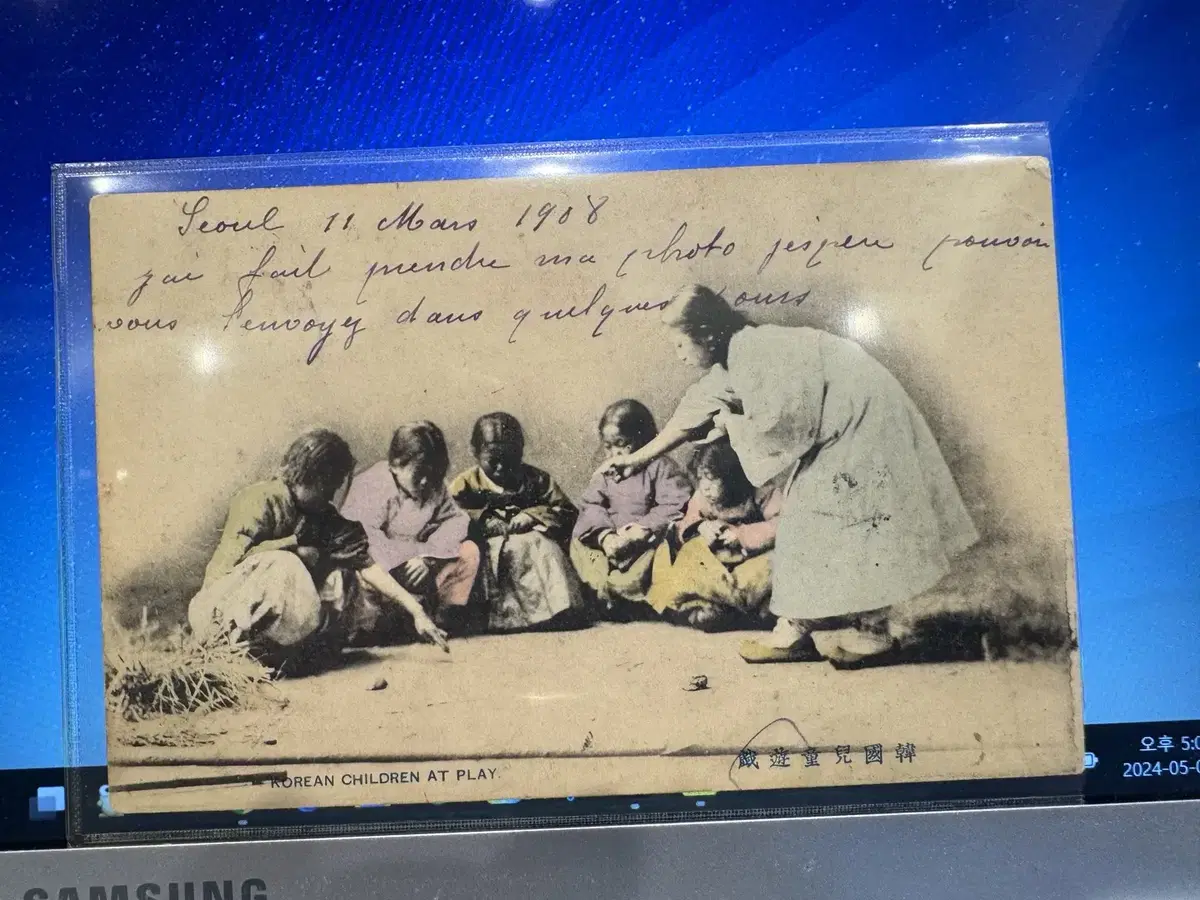 Seoul 11 Mars 1908
jai fait prendre ma photo jespere pouvoir
vous l'envoyez dans quelques jours
韓國兒童遊戱
KOREAN CHILDREN AT PLAY.
오후 5:0
2024-05-0
SAMSUNG